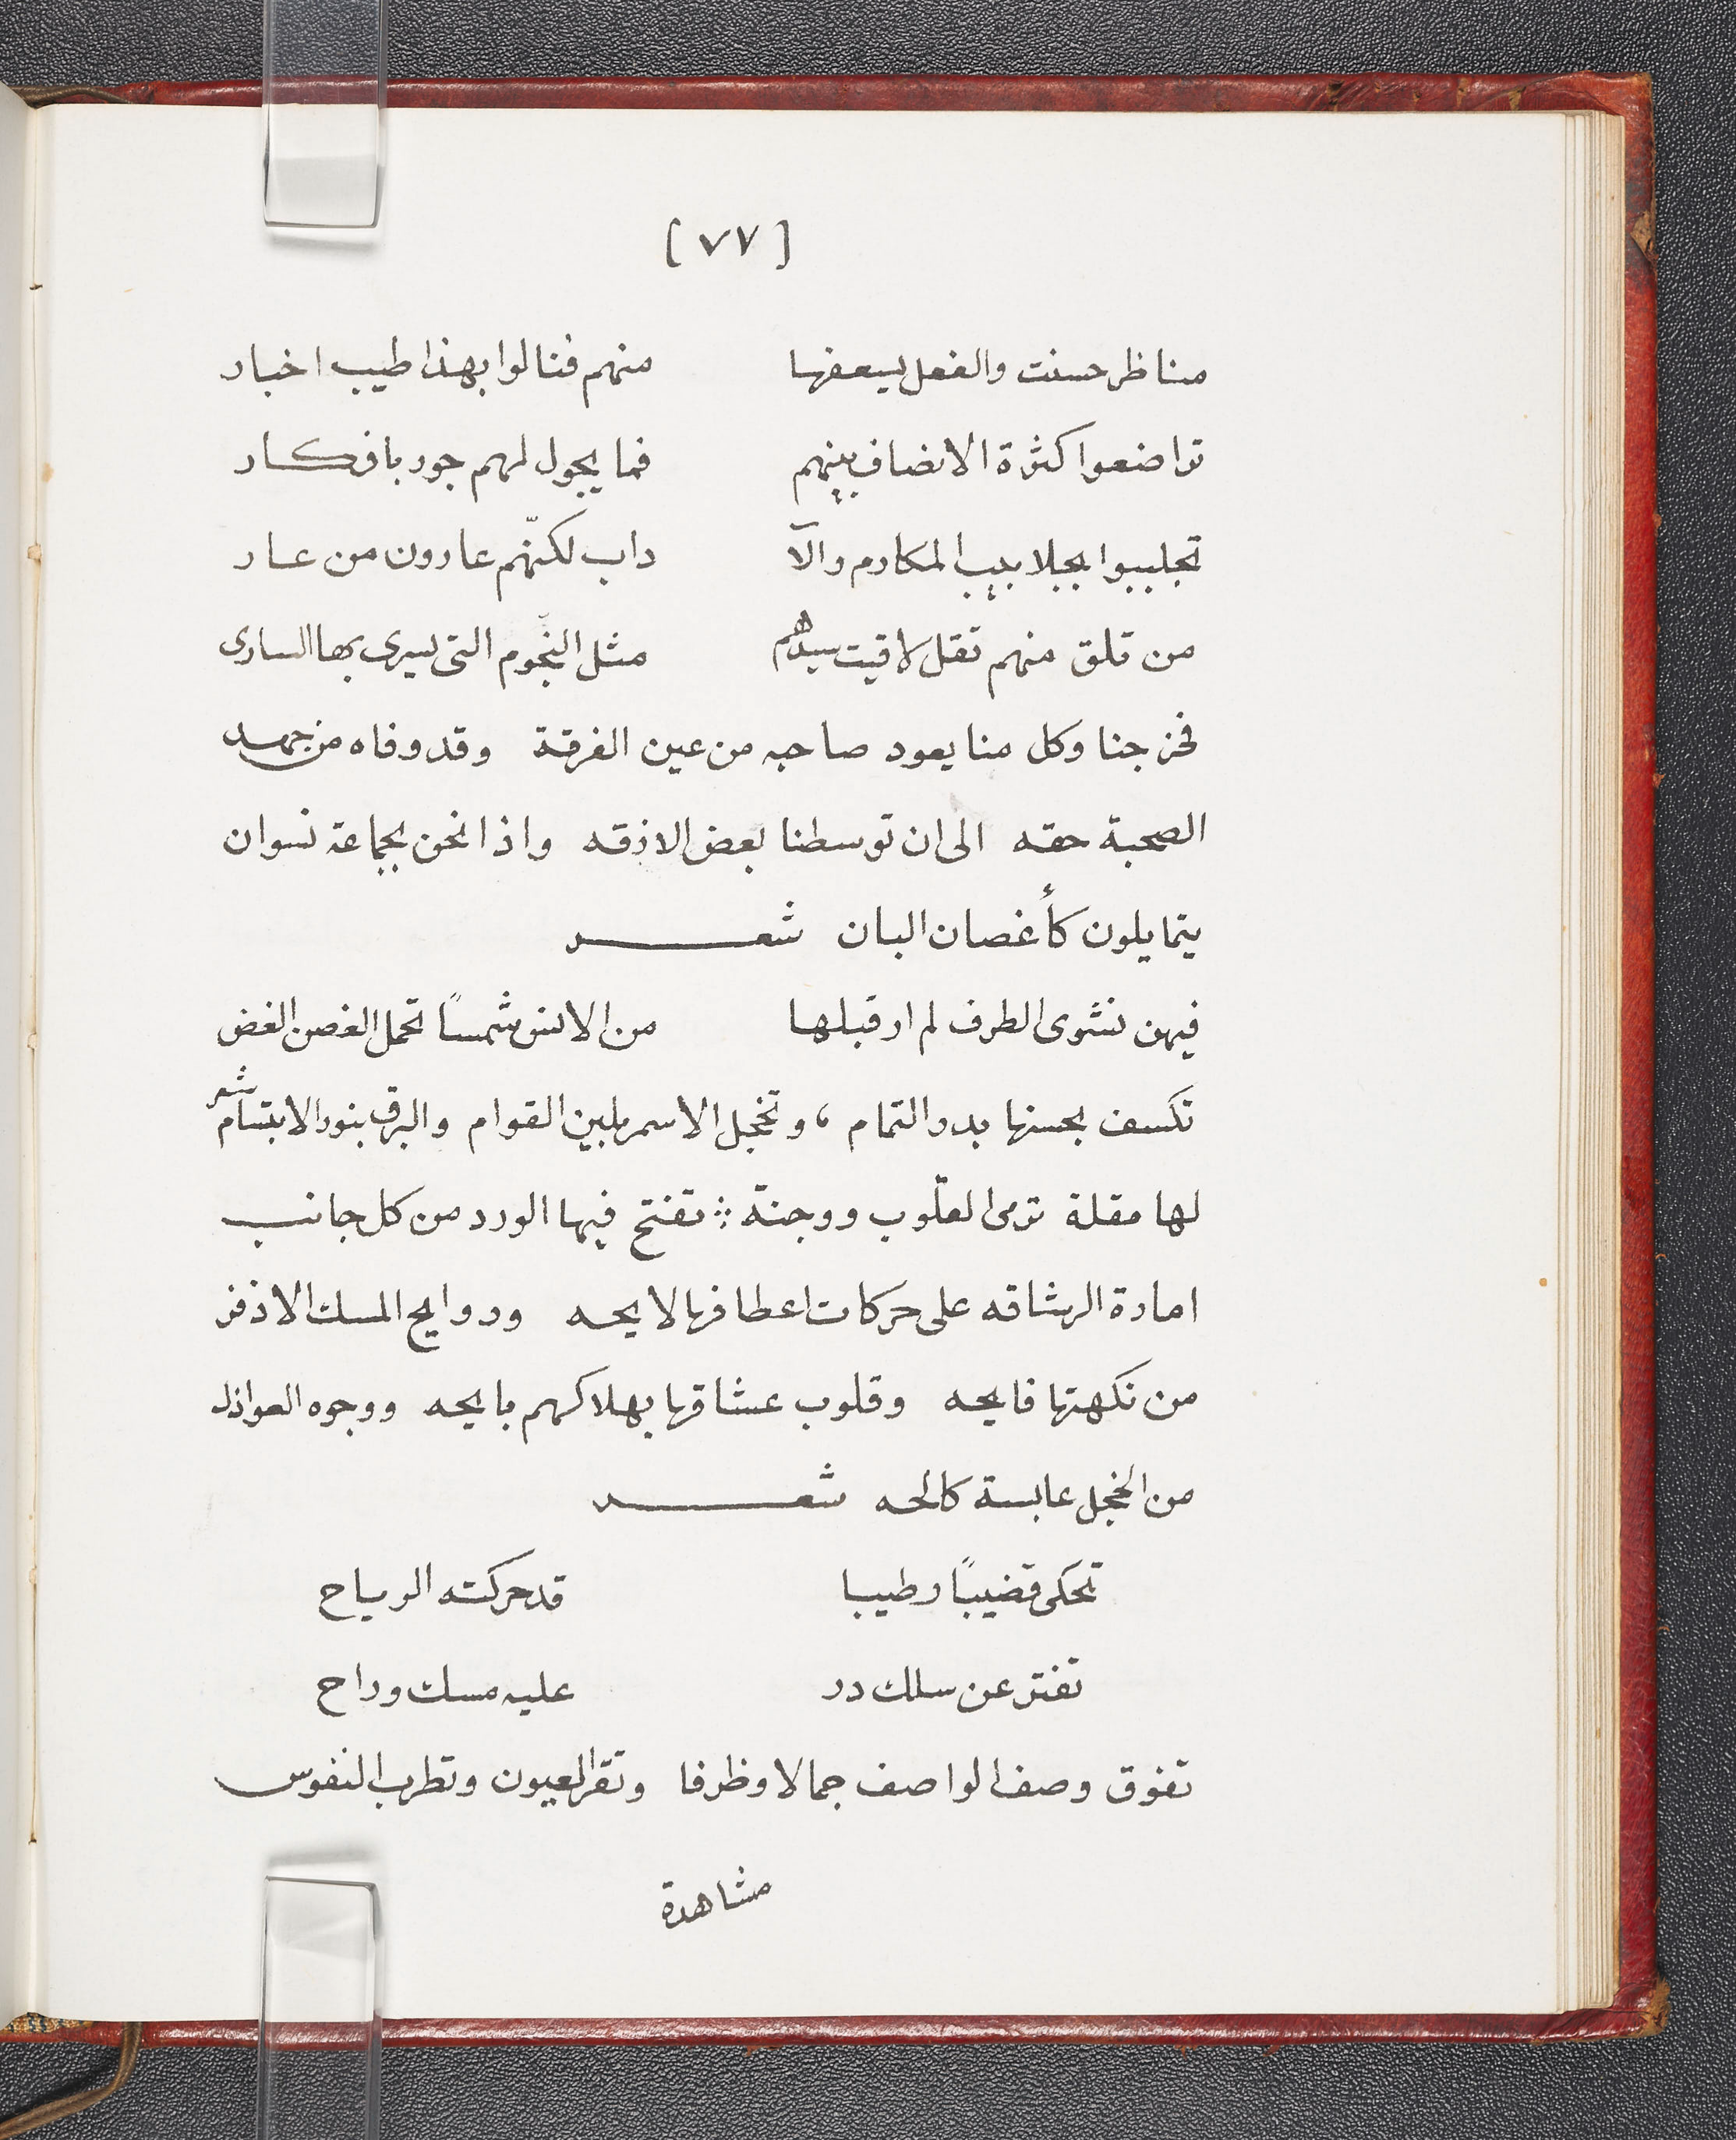 [ ٧٧ ]
مناظر حسنت والفعل يسعفها منهم فنالوا بهذا طيب اخبار
تواضعوا كثرة الانصاف بينهم فما يجول لهم جور بافكار
تجلببوا بجلابيب المكارم والآ داب لكنّهم عارون من عار
من تلق منهم تقل لاقيت سيدهم مثل النجوم التى يسرى بها السارى
فخرجنا وكل منا يعود صاحبه من عين الفرقة وقد وفاه من جهد
الصحبة حقه الى ان توسطنا بعض الازقه واذا نحن بجماعة نسوان
يتمايلون كأغصان البان شعر
فيهن نشوى الطرف لم ار قبلها من الانس شمسًا تحمل الغصن الغض
تكسف بحسنها بدر التمام ، وتخجل الاسمر بلين القوام والبرق بنور الابتسام شعر
لها مقلة ترمى القلوب ووجنة ؞ تفتح فيها الورد من كل جانب
امارة الرشاقه على حركات اعطافها لايحه وروايح المسك الاذفر
من نكهتها فايحه وقلوب عشاقها بهلاكهم بايحه ووجوه العواذل
من الخجل عابسة كالحه شعر
تحكى قضيبًا رطيبا قد حركته الرياح
تفتر عن سلك در عليه مسك وراح
تفوق وصف الواصف جمالا وظرفا وتقر العيون وتطرب النفوس
مشاهدة